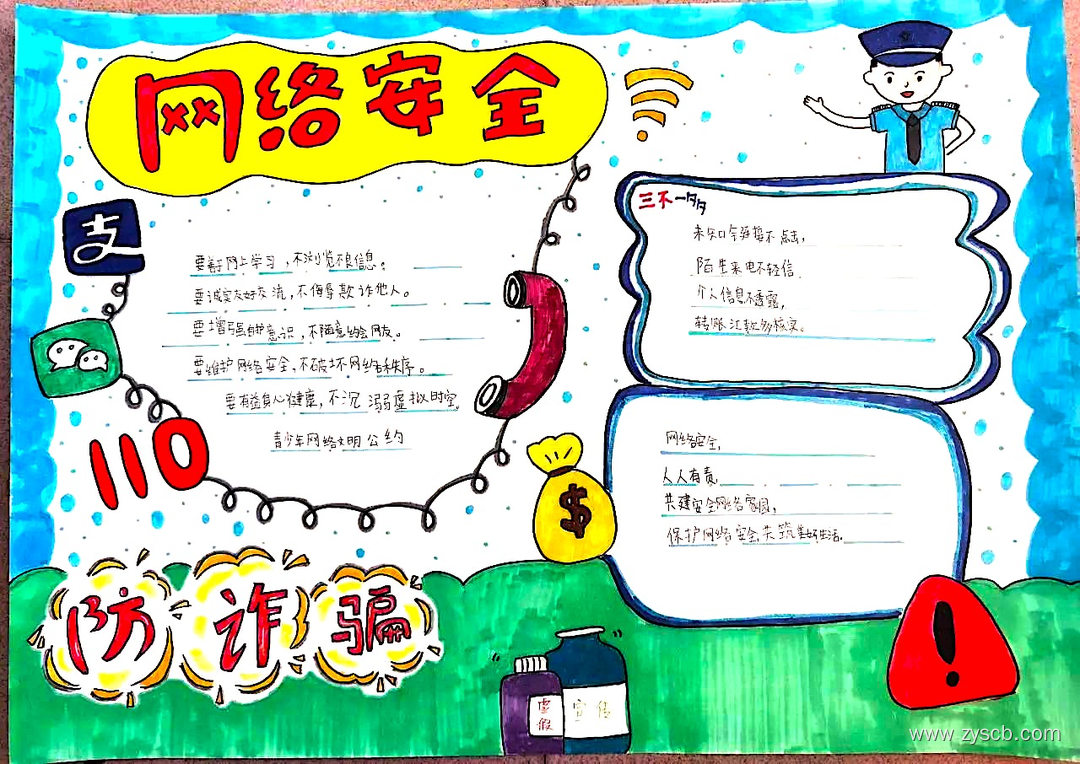 网络安全
支
要善于网上学习，不浏览不良信息。
要诚实友好交流，不侮辱欺诈他人。
要增强自护意识，不随意约会网友。
要维护网络安全，不破坏网络秩序。
要有益身心健康，不沉溺虚拟时空。
青少年网络文明公约
110
三不一多
未知链接不点击，
陌生来电不轻信，
个人信息不透露，
转账汇款多核实。
$
网络安全，
人人有责，
共建安全网络家园，
保护网络安全共筑美好生活。
!
防诈骗
虚假
宣传
www.zyscb.com